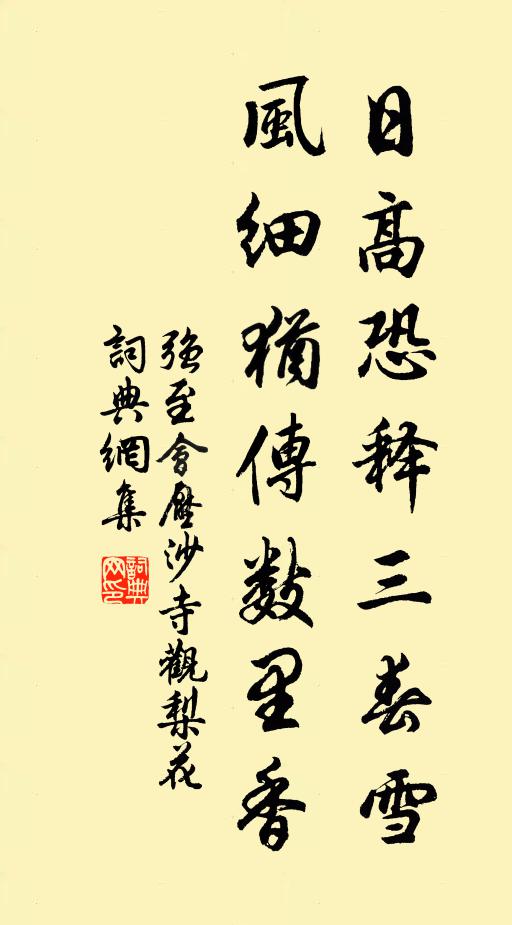 日高恐释三春雪
風细猶傳数里香
强至會壓沙寺觀梨花
詞典網集
詞典网印